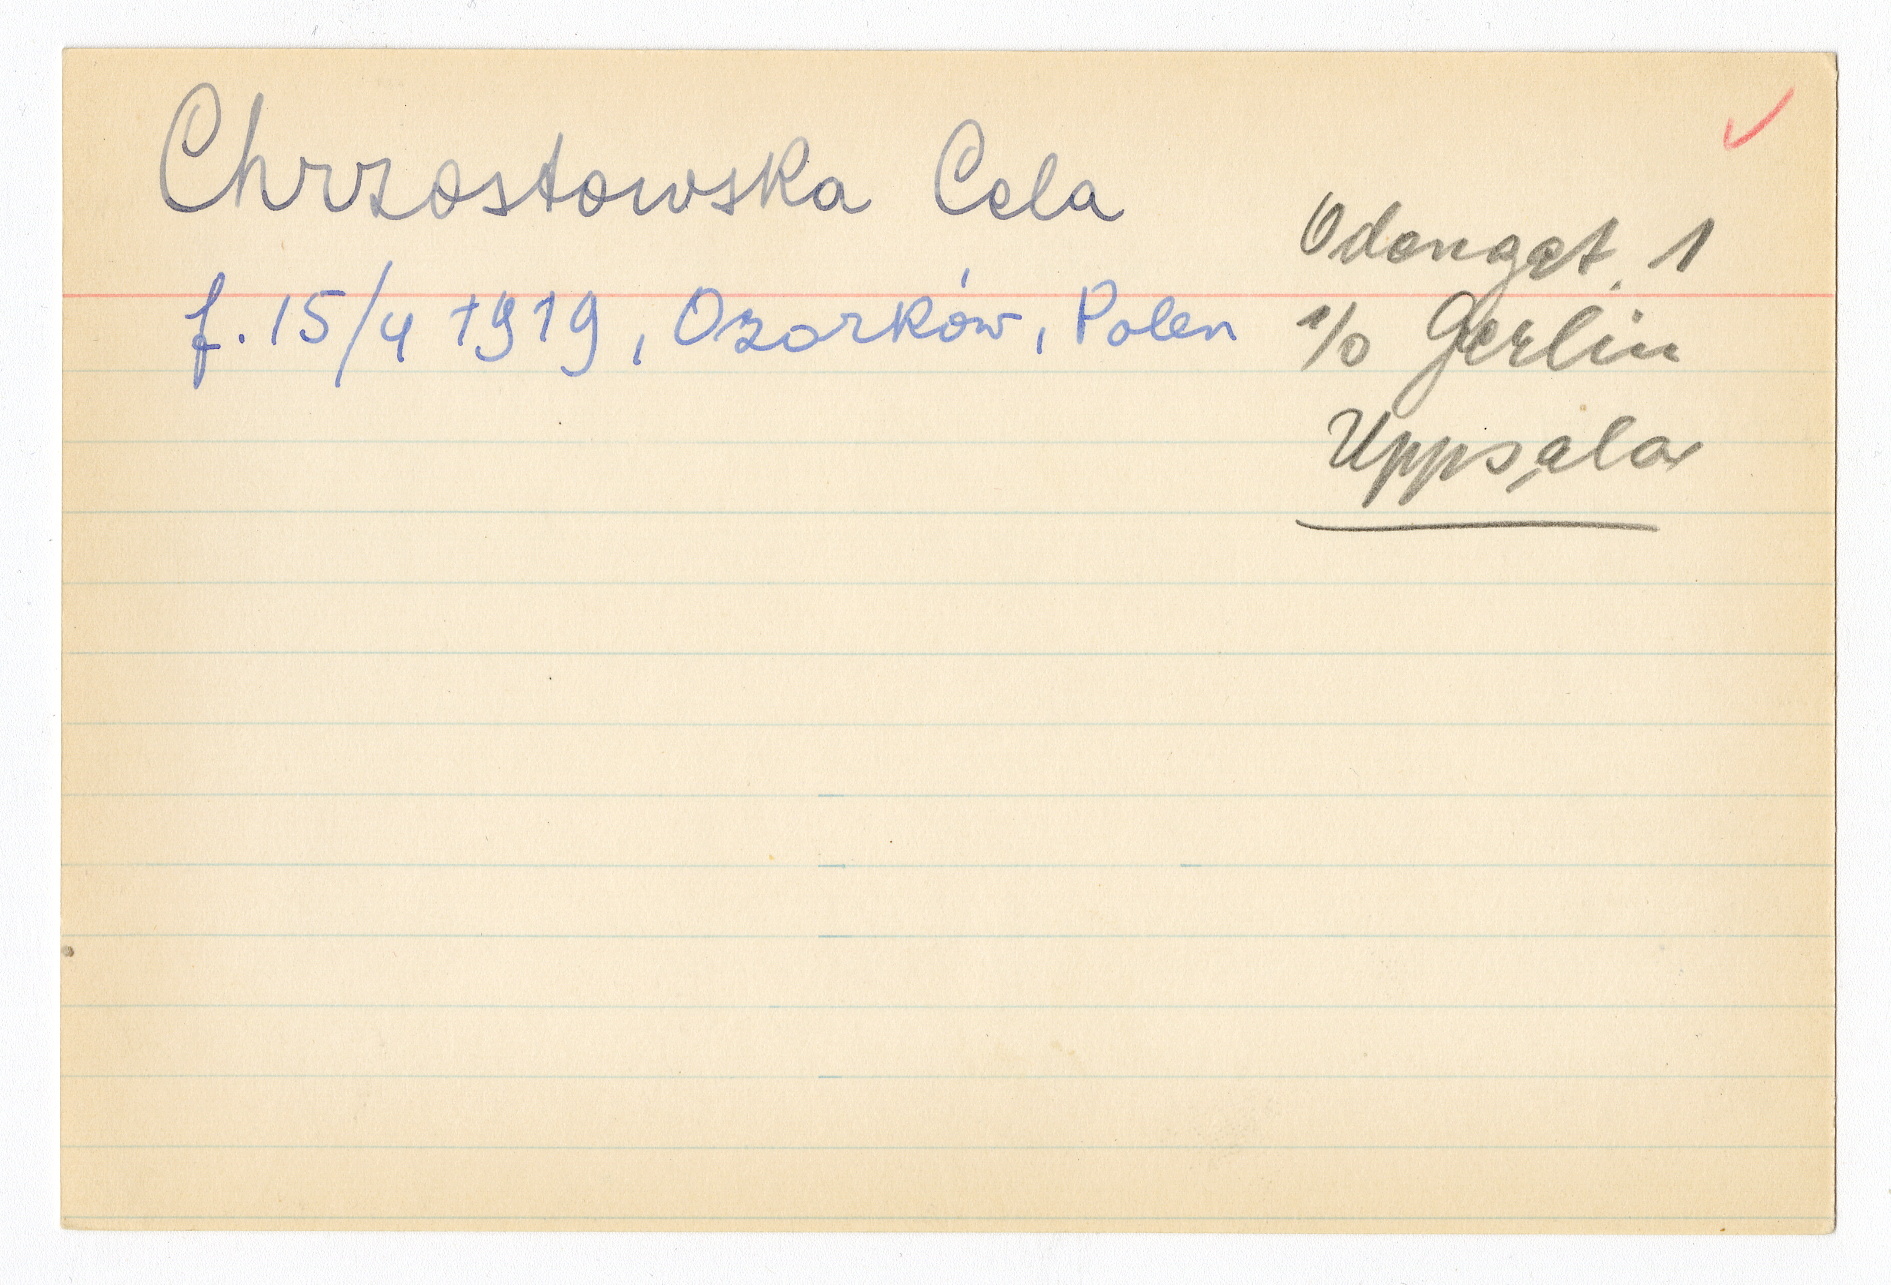 Chrzostowska Cela
f. 15/4 1919, Ozorków, Polen
Odengat. 1
c/o Gerlin
Uppsala